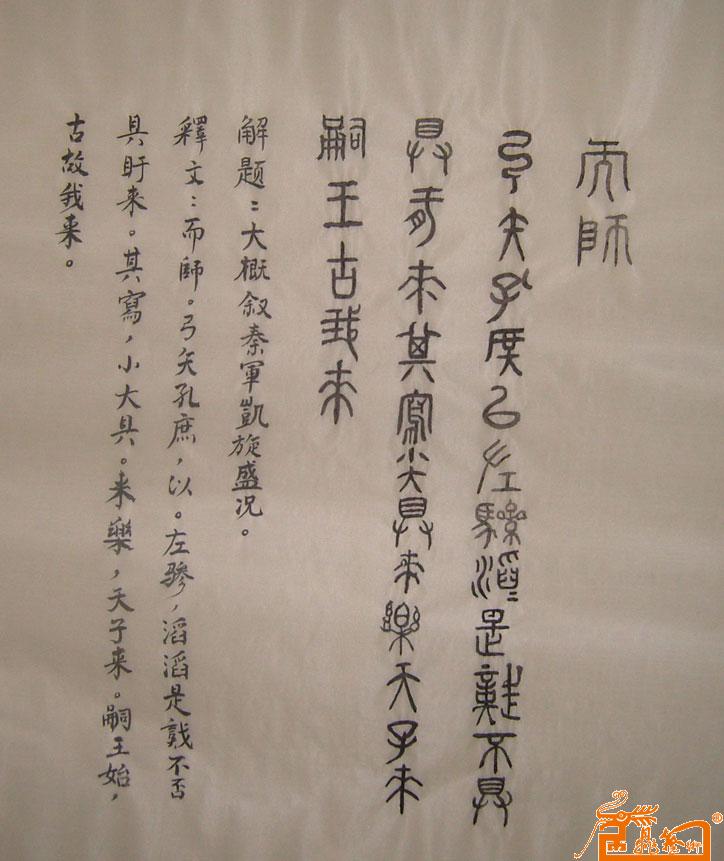 而師
弓矢孔庶以左驂滔=是戠不具
具盱来其寫小大具来樂天子来
嗣王古我来
解题：大概叙秦軍凱旋盛况。
释文：而師。弓矢孔庶，以。左骖，滔滔是戠不否
具盱来。其寫，小大具。来樂，天子来。嗣王始，
古故我来。